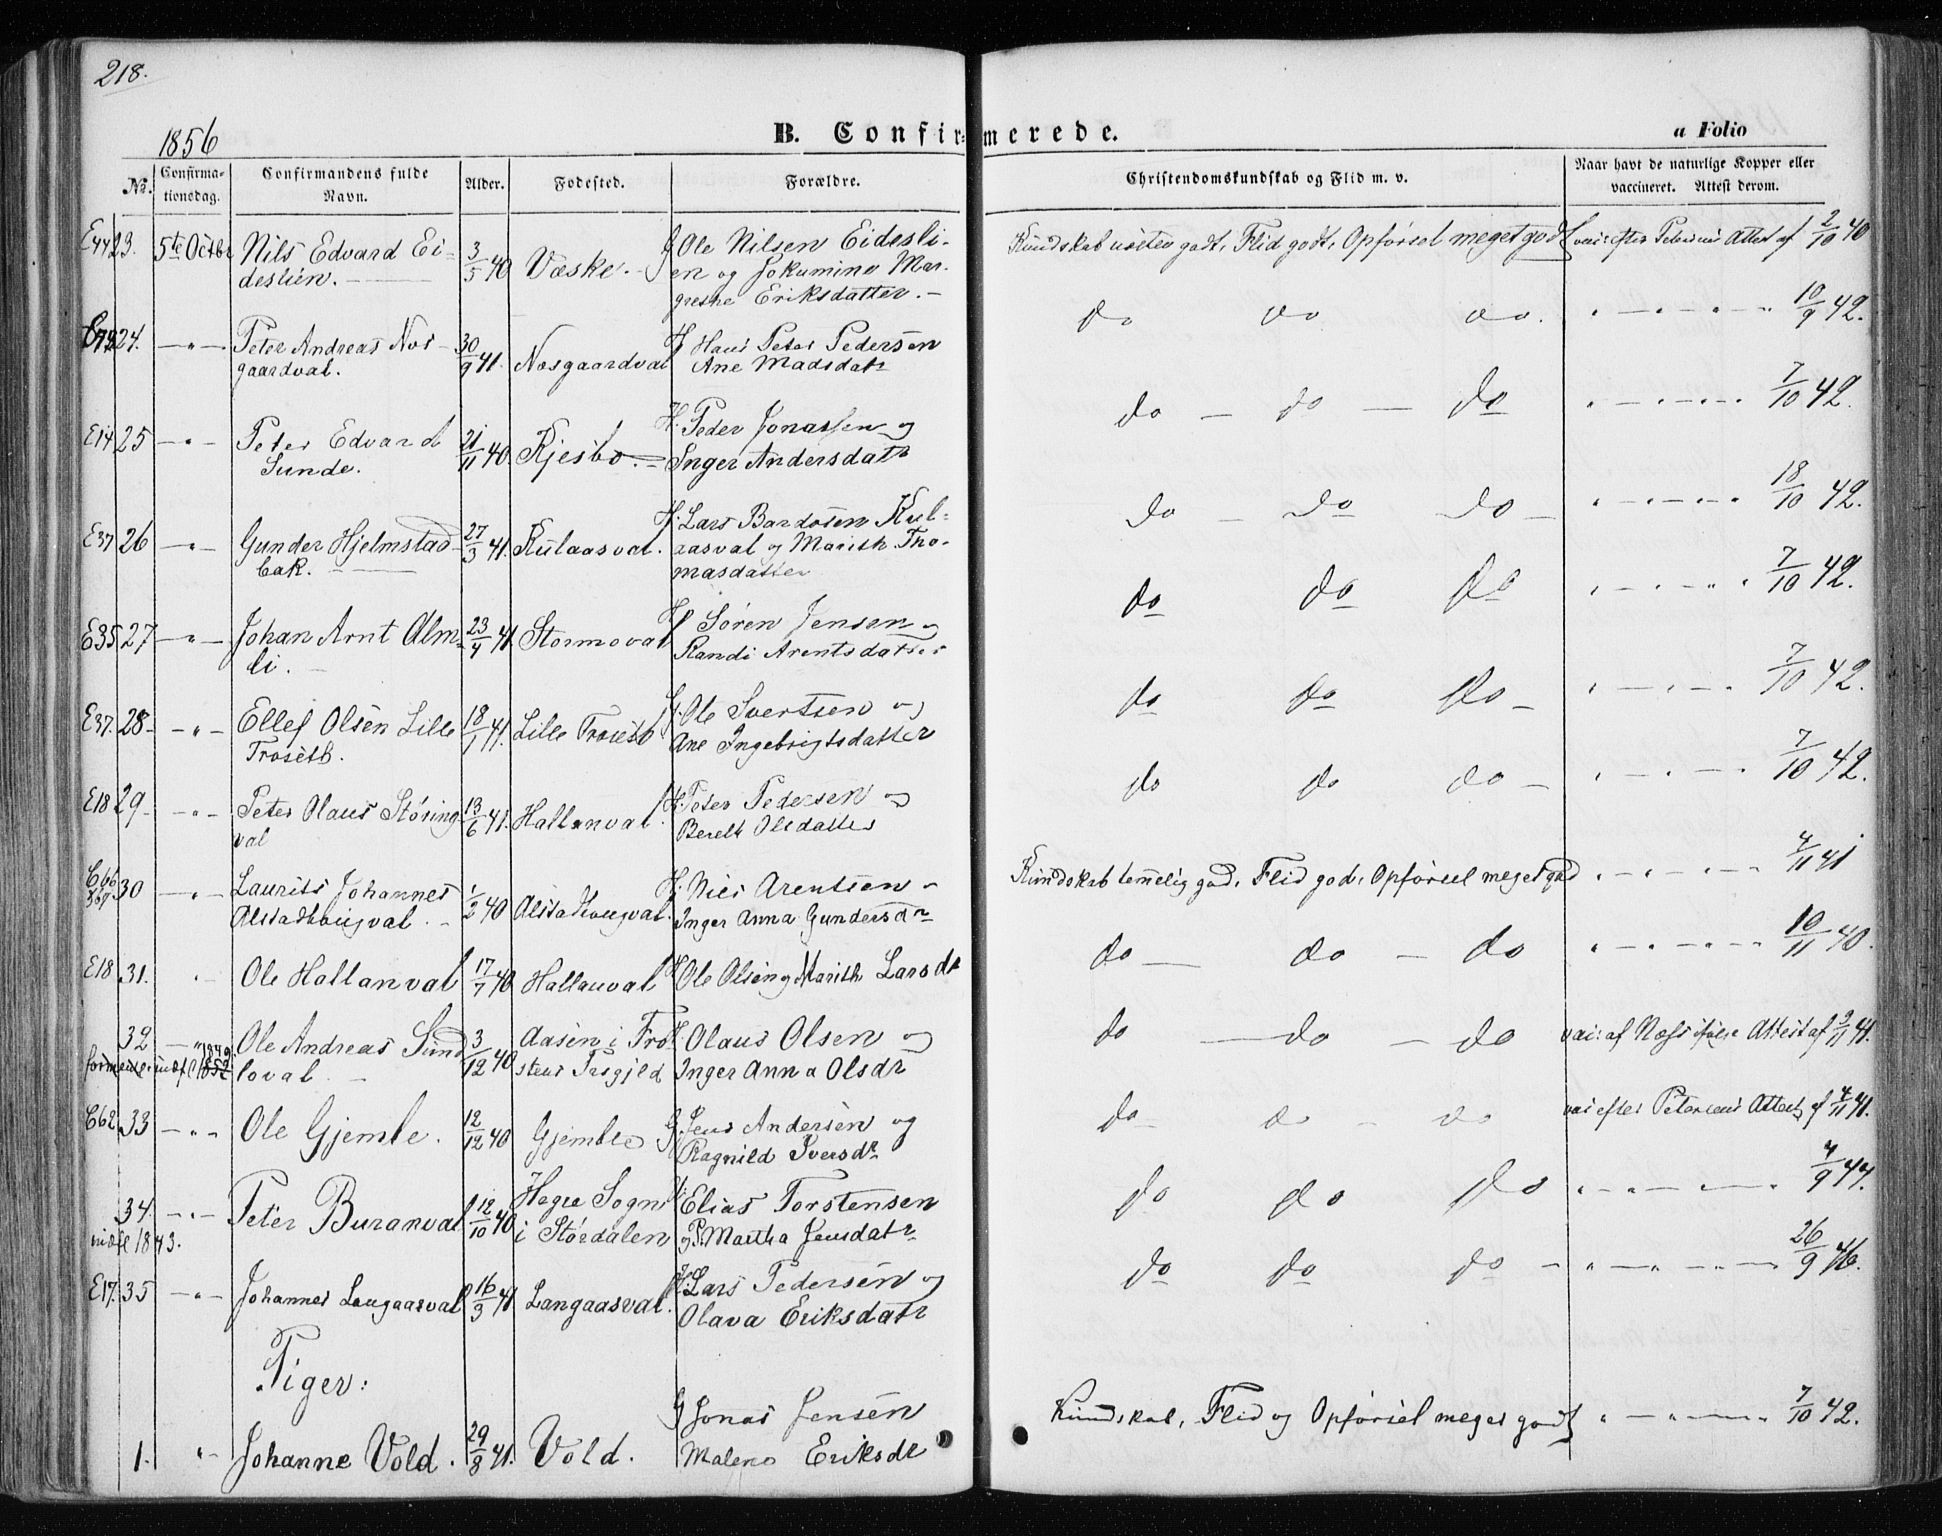 218.
1856
B. Confirmerede.
a Folio
No. Confirmationsdag. Confirmandens fulde Navn. Alder. Fødested. Forældre. Christendomskundskab og Flid m. v. Naar havt de naturlige Kopper eller vaccineret. Attest derom.
E44 23. 5te Octbr Nils Edvard Ei- 3/5 40 Væske. G Ole Nilsen Eidesli- Kundskab næsten godt, Flid godt, Opførsel meget godt vac: efter Petersens Attest af 2/10 40
deslien. en og Jokumine Mar-
grethe Eriksdatter.
24. — " — Peter Andreas Nos- 30/9 41. Nosgaardval H Hans Peter Pedersen do do do. " — " — " — " 10/9 42.
gaardval. Ane Madsdatr
E14 25 — " — Peter Edvard 21/11 40 Kjesbo. H. Peder Jonassen og do — do — do " — " — " 7/10 42.
Sunde. Inger Andersdatr
E37 26 — " — Gunder Hjelmstad- 27/3 41. Kulaasval. H. Lars Bardosen Kul- do — do do — " — " — " 18/10 42.
bak. aasval og Marith Tho-
masdatter
E35 27 — " — Johan Arnt Alm- 23/4 41. Stormoval H Søren Jensen og do do do " — " — " 7/10 42.
li. Randi Arentsdatter
E37. 28 — " — Ellef Olsen Lille 18/1 41. Lille Troseth G. Ole Ivertsen og do do do — " — " — " 7/10 42.
Troseth. Ane Ingebrigtsdatter
E18 29 — " — Peter Olaus Støring- 13/6 41. Hallanval. H. Peter Pedersen og do do do — " — " — " 7/10 42.
val Berelt Olsdatter
30 — " — Laurits Johannes 1/2 40 Alstadhougval. H. Nils Arentsen Kundskab temmelig god, Flid god, Opførsel meget god " — " — " 4/11 41
Alstadhougval. Inger Anna Gundersdr
E18 31. " Ole Hallanval 17/7 40 Hallanval H Ole Olsen og Marith Larsdr do — do — do " — " — " 10/11 40.
32 — " Ole Andreas Sund- 3/12 40 Aasen i Fro- H. Olaus Olsen og do — do — do vac: af Attest af 3/11 41.
1849 1852 loval. stens Prsgjeld Inger Anna Olsdr
E62 33 — " — Ole Gjemble. 12/12 40 Gjemble G. Jens Andersen og do — do — do vac efter Petersens Attest af 4/11 41.
Ragnild Iversdr
34. — " — Peter Buranval 12/10 40 Hegre Sogn Elias Torstensen do do do " — " — " 4/9 47.
1843. i Størdalen og P. Martha Jensdatr
E17. 35 — " — Johannes Langaasval 16/3 41 Langaasval. H. Lars Pedersen og do do do — " — " — " 26/9 46.
Olava Eriksdatr
Piger:
1. " Johanne Vold. 29/8 41. Vold. G Jonas Jensen Kundskab, Flid og Opførsel meget godt " — " — " 7/10 42.
Malene Eriksdr